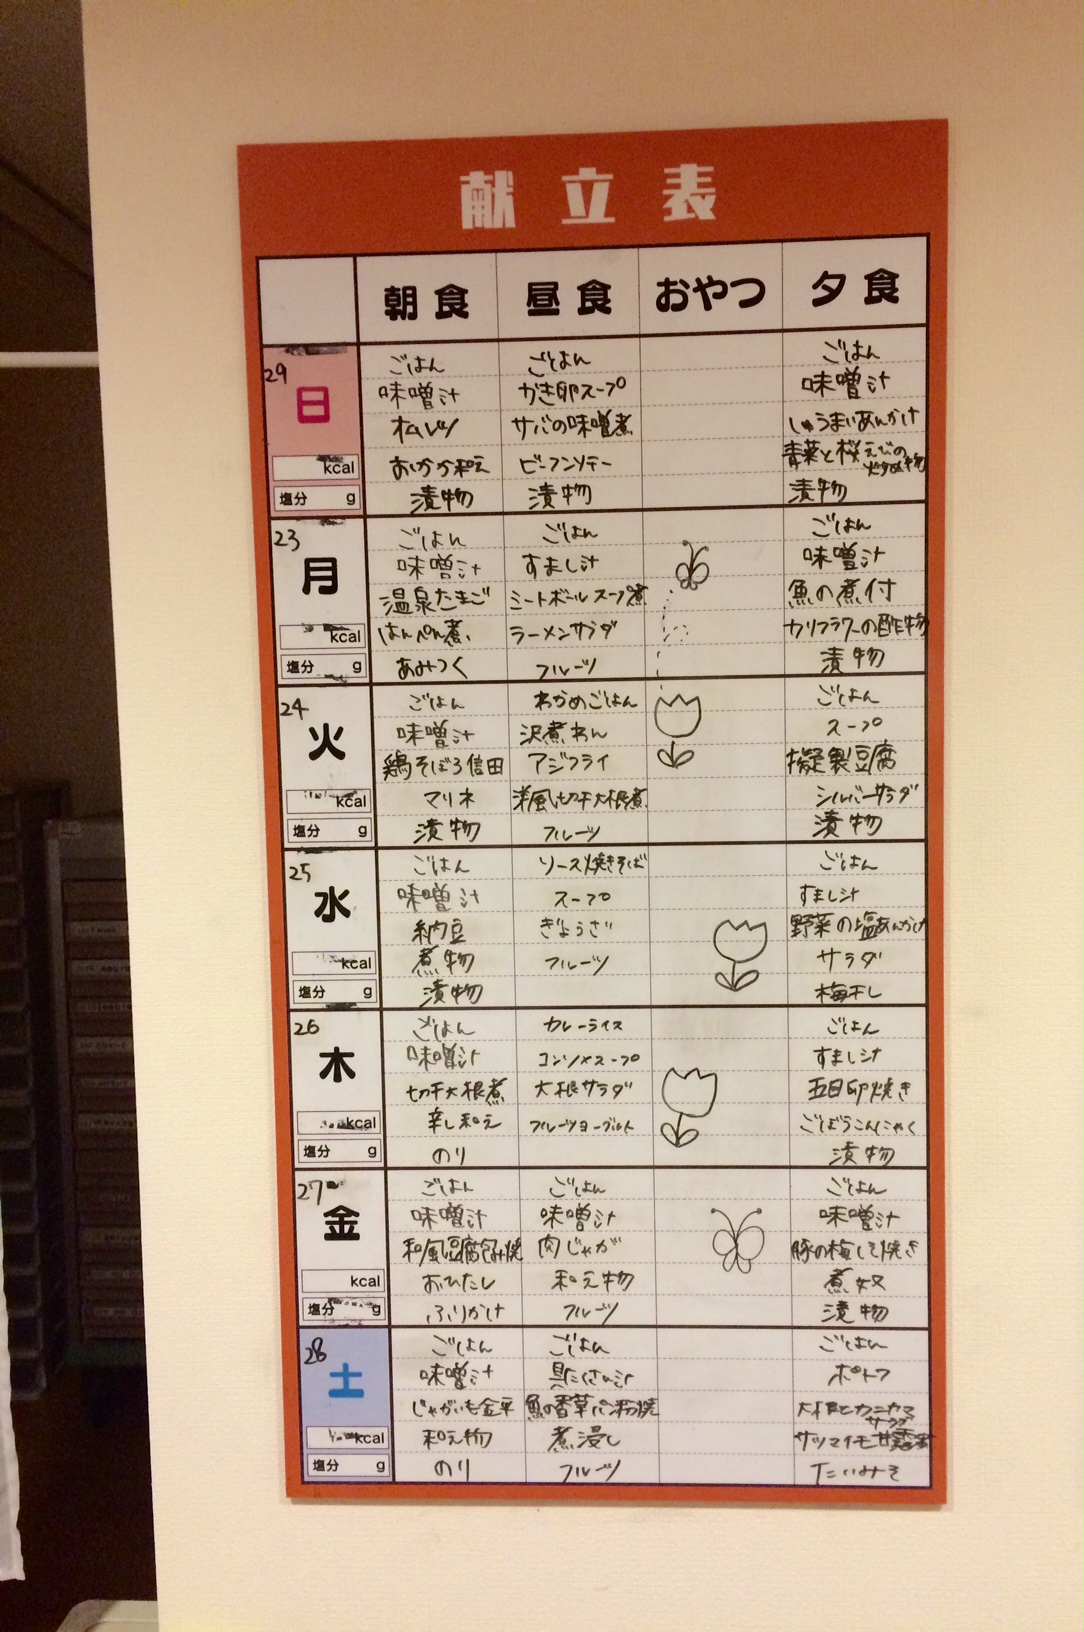 献立表
朝食 昼食 おやつ 夕食
29 日 kcal 塩分 g
ごはん
味噌汁
オムレツ
おかか和え
漬物
ごはん
かき卵スープ
サバの味噌煮
ビーフンソテー
漬物
ごはん
味噌汁
しゅうまいあんかけ
青菜と桜えびの炒め物
漬物
23 月 kcal 塩分 g
ごはん
味噌汁
温泉たまご
はんぺん煮
あみつく
ごはん
すまし汁
ミートボールスープ煮
ラーメンサラダ
フルーツ
ごはん
味噌汁
魚の煮付
カリフラワーの酢物
漬物
24 火 kcal 塩分 g
ごはん
味噌汁
鶏そぼろ信田
マリネ
漬物
わかめごはん
沢煮わん
アジフライ
洋風切干大根煮
フルーツ
ごはん
スープ
擬製豆腐
シルバーサラダ
漬物
25 水 kcal 塩分 g
ごはん
味噌汁
納豆
煮物
漬物
ソース焼きそば
スープ
ぎょうざ
フルーツ
ごはん
すまし汁
野菜の塩あんかけ
サラダ
梅干し
26 木 kcal 塩分 g
ごはん
味噌汁
切干大根煮
辛し和え
のり
カレーライス
コンソメスープ
大根サラダ
フルーツヨーグルト
ごはん
すまし汁
五目卵焼き
ごぼうこんにゃく
漬物
27 金 kcal 塩分 g
ごはん
味噌汁
和風豆腐包み焼
おひたし
ふりかけ
ごはん
味噌汁
肉じゃが
和え物
フルーツ
ごはん
味噌汁
豚の梅しそ焼き
煮奴
漬物
28 土 kcal 塩分 g
ごはん
味噌汁
じゃがいも金平
和え物
のり
ごはん
具だくさん汁
魚の香草パン粉焼
煮浸し
フルーツ
ごはん
ポトフ
大根とカニカマサラダ
サツマイモ甘露煮
たいみそ